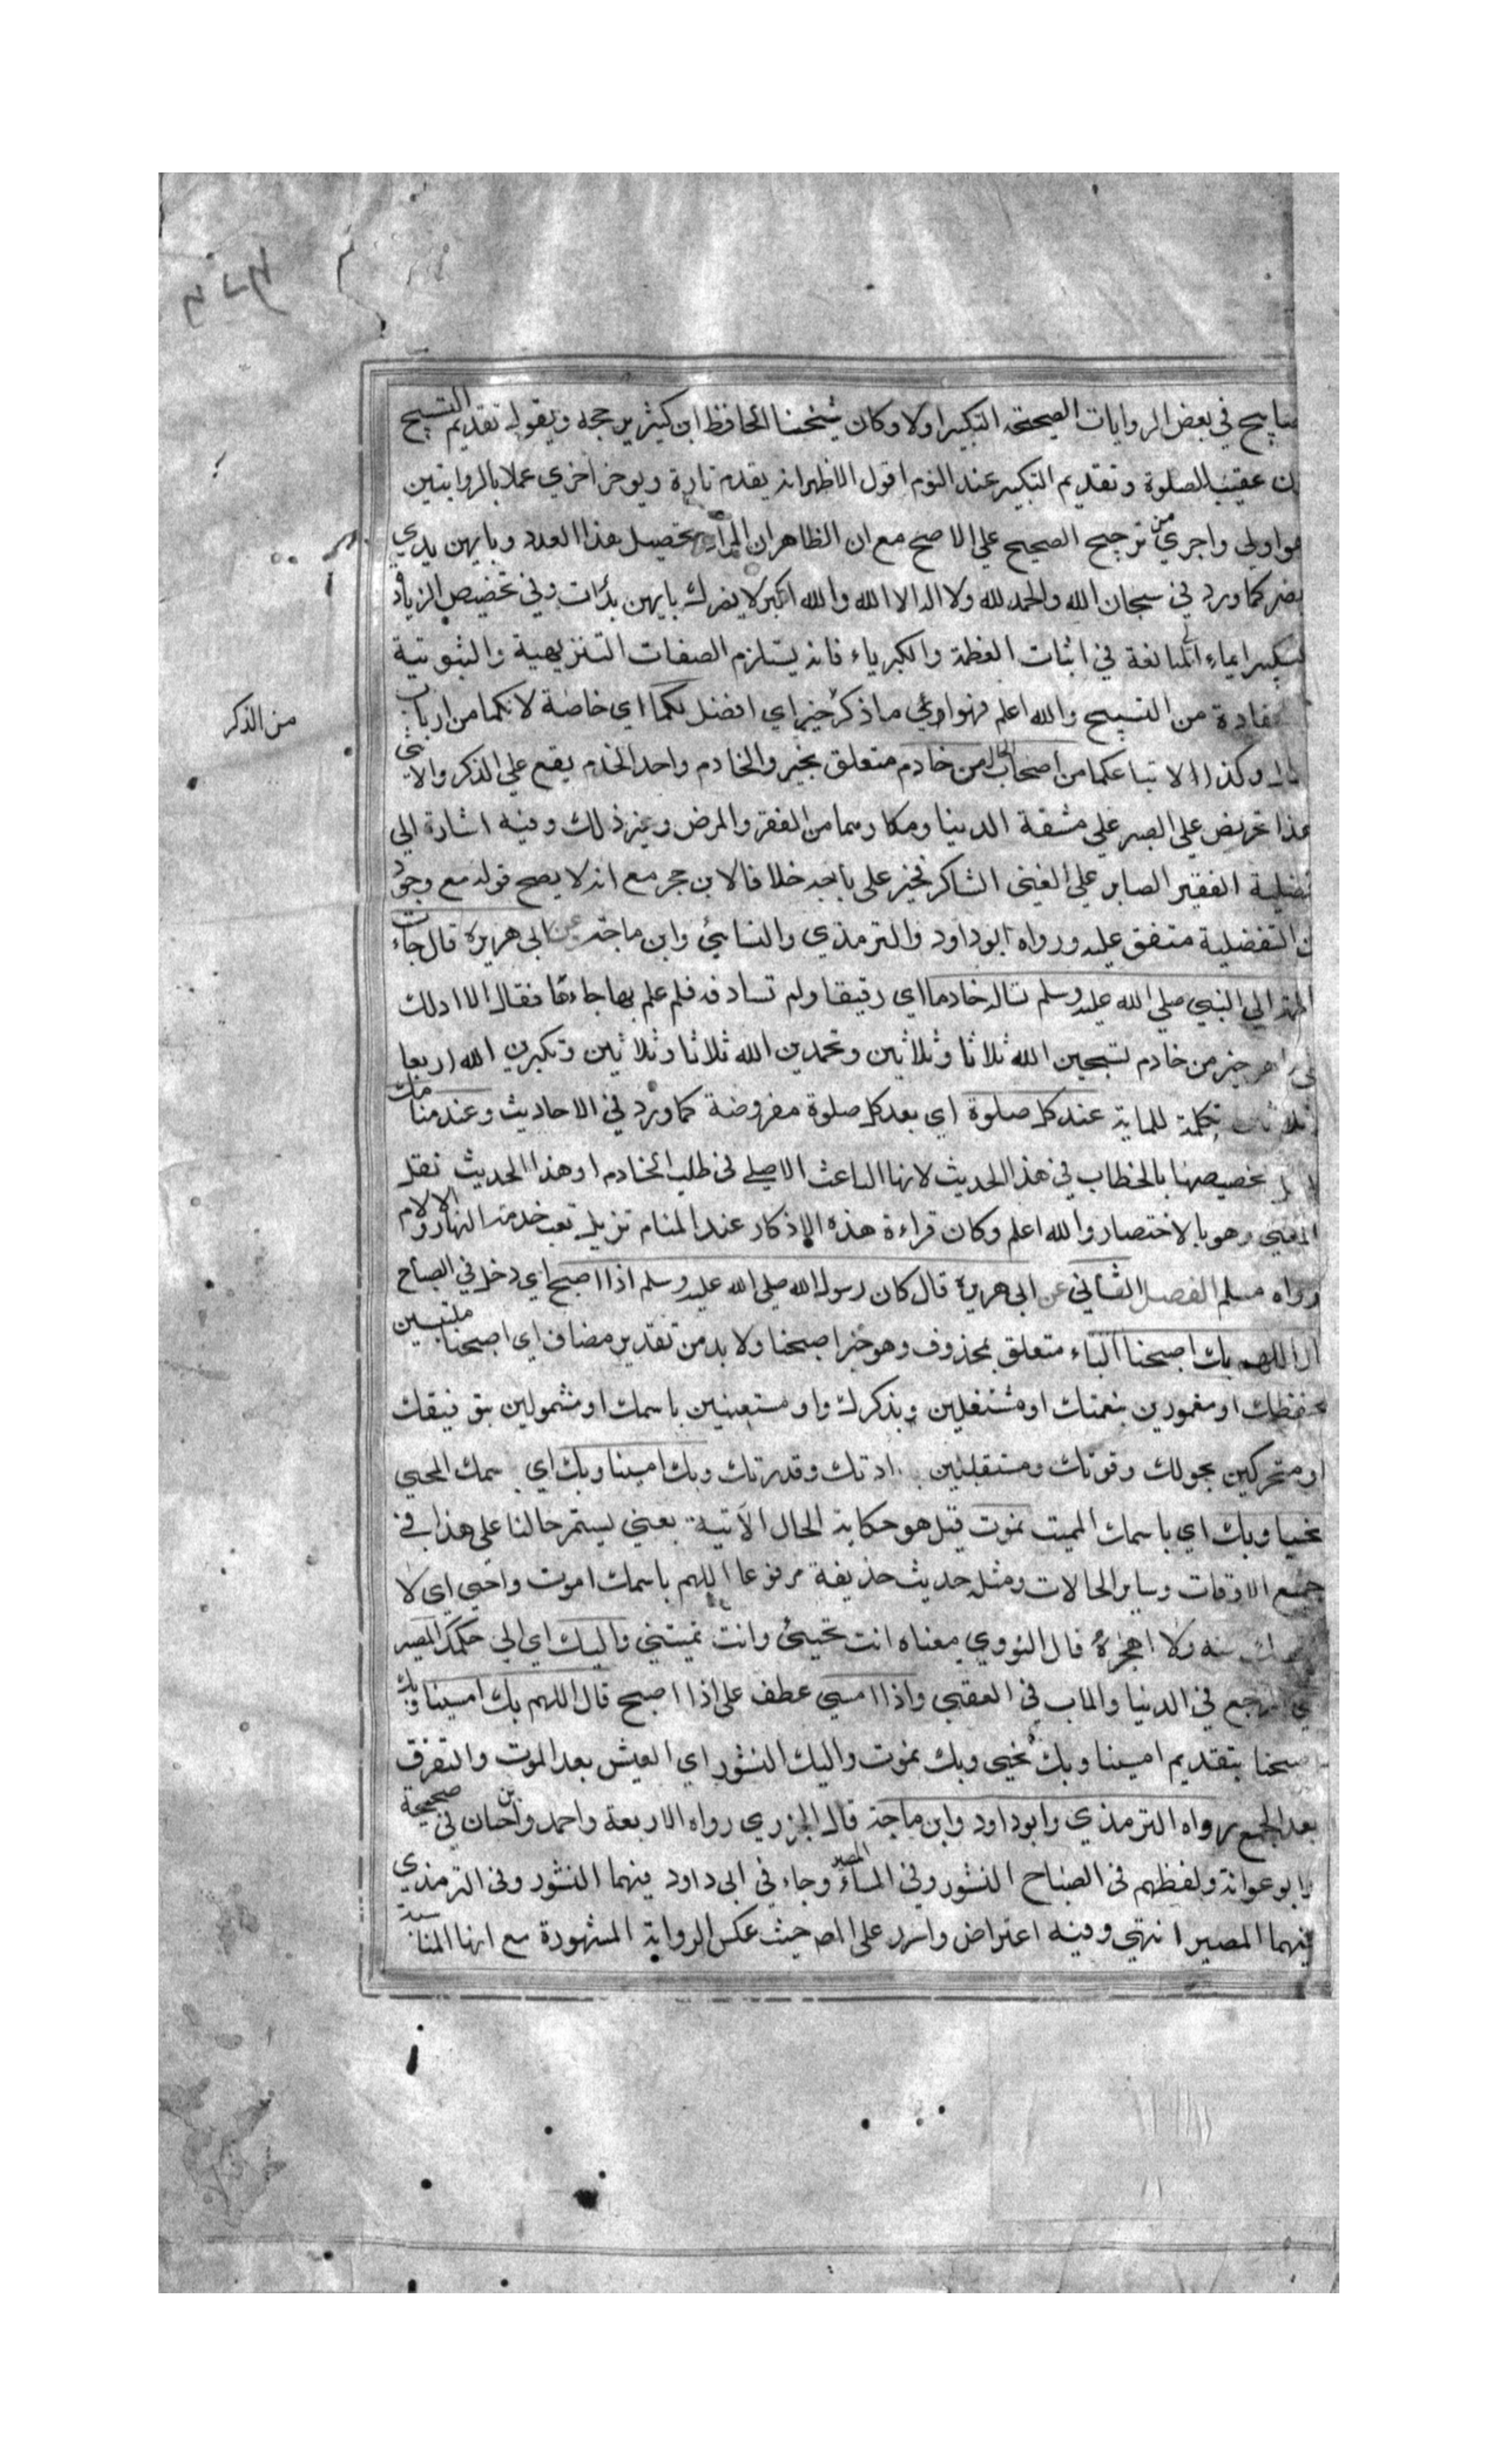 صابيح في بعض الروايات الصحيحة التكبير اولا وكان شيخنا الحافظ ابن كثير يرجحه ويقول تقديم التسبيح
عقيب الصلوة وتقديم التكبير عند النوم اقول الاظهر انه يقدم تارة ويوخر اخري عملا بالروايتين
اولي واحري من ترجيح الصحيح علي الاصح مع ان الظاهر ان المراد تحصيل هذا العدد وبايهن بدي
يضر كما ورد في سبحان الله والحمد لله ولا اله الا الله والله اكبر لا يضرك بايهن بدات وفي تخصيص الزيادة
ايماء الي المبالغة في اثبات العظمة والكبرياء فانه يستلزم الصفات التنزيهية والثبوتية
من التسبيح والله اعلم فهو اي ما ذكر من الذكر خير اي افضل لكما اي خاصة لانكما من ارباب
وكذا لاتباعكما من اصحاب الحال من خادم متعلق بخير والخادم واحد الخدم يقع علي الذكر والانثي
هذا تحريض علي الصبر علي مشقة الدنيا ومكارهها من الفقر والمرض وغير ذلك وفيه اشارة الي
افضلية الفقير الصابر علي الغني الشاكر فخير علي بابه خلافا لابن حجر مع انه لا يصح قوله مع وجود
من التفضلية متفق عليه ورواه ابو داود والترمذي والنسائي وابن ماجه عن ابي هريرة قال جاءت
فاطمة الي النبي صلي الله عليه وسلم تساله خادما اي رقيقا ولم تصادفه فلم علم بها جاءها فقال الا ادلك
علي ما هو خير من خادم تسبحين الله ثلاثا وثلاثين وتحمدين الله ثلاثا وثلاثين وتكبرين الله اربعا
وثلاثين تكملة للماية عند كل صلوة اي بعد كل صلوة مفروضة كما ورد في الاحاديث وعند منامك
تخصيصها بالخطاب في هذا الحديث لانها الباعث الاصلي في طلب الخادم او هذا الحديث نقل
بالمعني وهو بالاختصار والله اعلم وكان قراءة هذه الاذكار عند المنام تزيل تعب خدمة النهار والالام
رواه مسلم الفصل الثاني عن ابي هريرة قال كان رسول الله صلي الله عليه وسلم اذا اصبح اي دخل في الصباح
قال اللهم بك اصبحنا الباء متعلق بمحذوف وهو خبر اصبحنا ولا بد من تقدير مضاف اي اصبحنا ملتبسين
بحفظك او مغمورين بنعمتك او مشتغلين بذكرك او مستعينين باسمك او مشمولين بتوفيقك
او متحركين بحولك وقوتك ومتقلبين بارادتك وقدرتك وبك امسينا وبك اي باسمك المحيي
نحيا وبك اي باسمك المميت نموت قيل هو حكاية الحال الآتية يعني يستمر حالنا علي هذا في
جميع الاوقات وساير الحالات ومثله حديث حذيفة مرفوعا اللهم باسمك اموت واحيي اي لا
عنه ولا اهجره قال النووي معناه انت تحييني وانت تميتني واليك اي الي حكمك المصير
اي المرجع في الدنيا والماب في العقبي واذا امسي عطف علي اذا اصبح قال اللهم بك امسينا وبك
اصبحنا بتقديم امسينا وبك نحيي وبك نموت واليك النشور اي العيش بعد الموت والتفرق
بعد الجمع رواه الترمذي وابو داود وابن ماجة قال الجزري رواه الاربعة واحمد وابن حبان في صحيحه
وابو عوانة ولفظهم في الصباح النشور وفي المساء المصير وجاء في ابي داود فيهما النشور وفي الترمذي
فيهما المصير انتهي وفيه اعتراض وارد علي المص حيث عكس الرواية المشهورة مع انها المناسبة
من الذكر